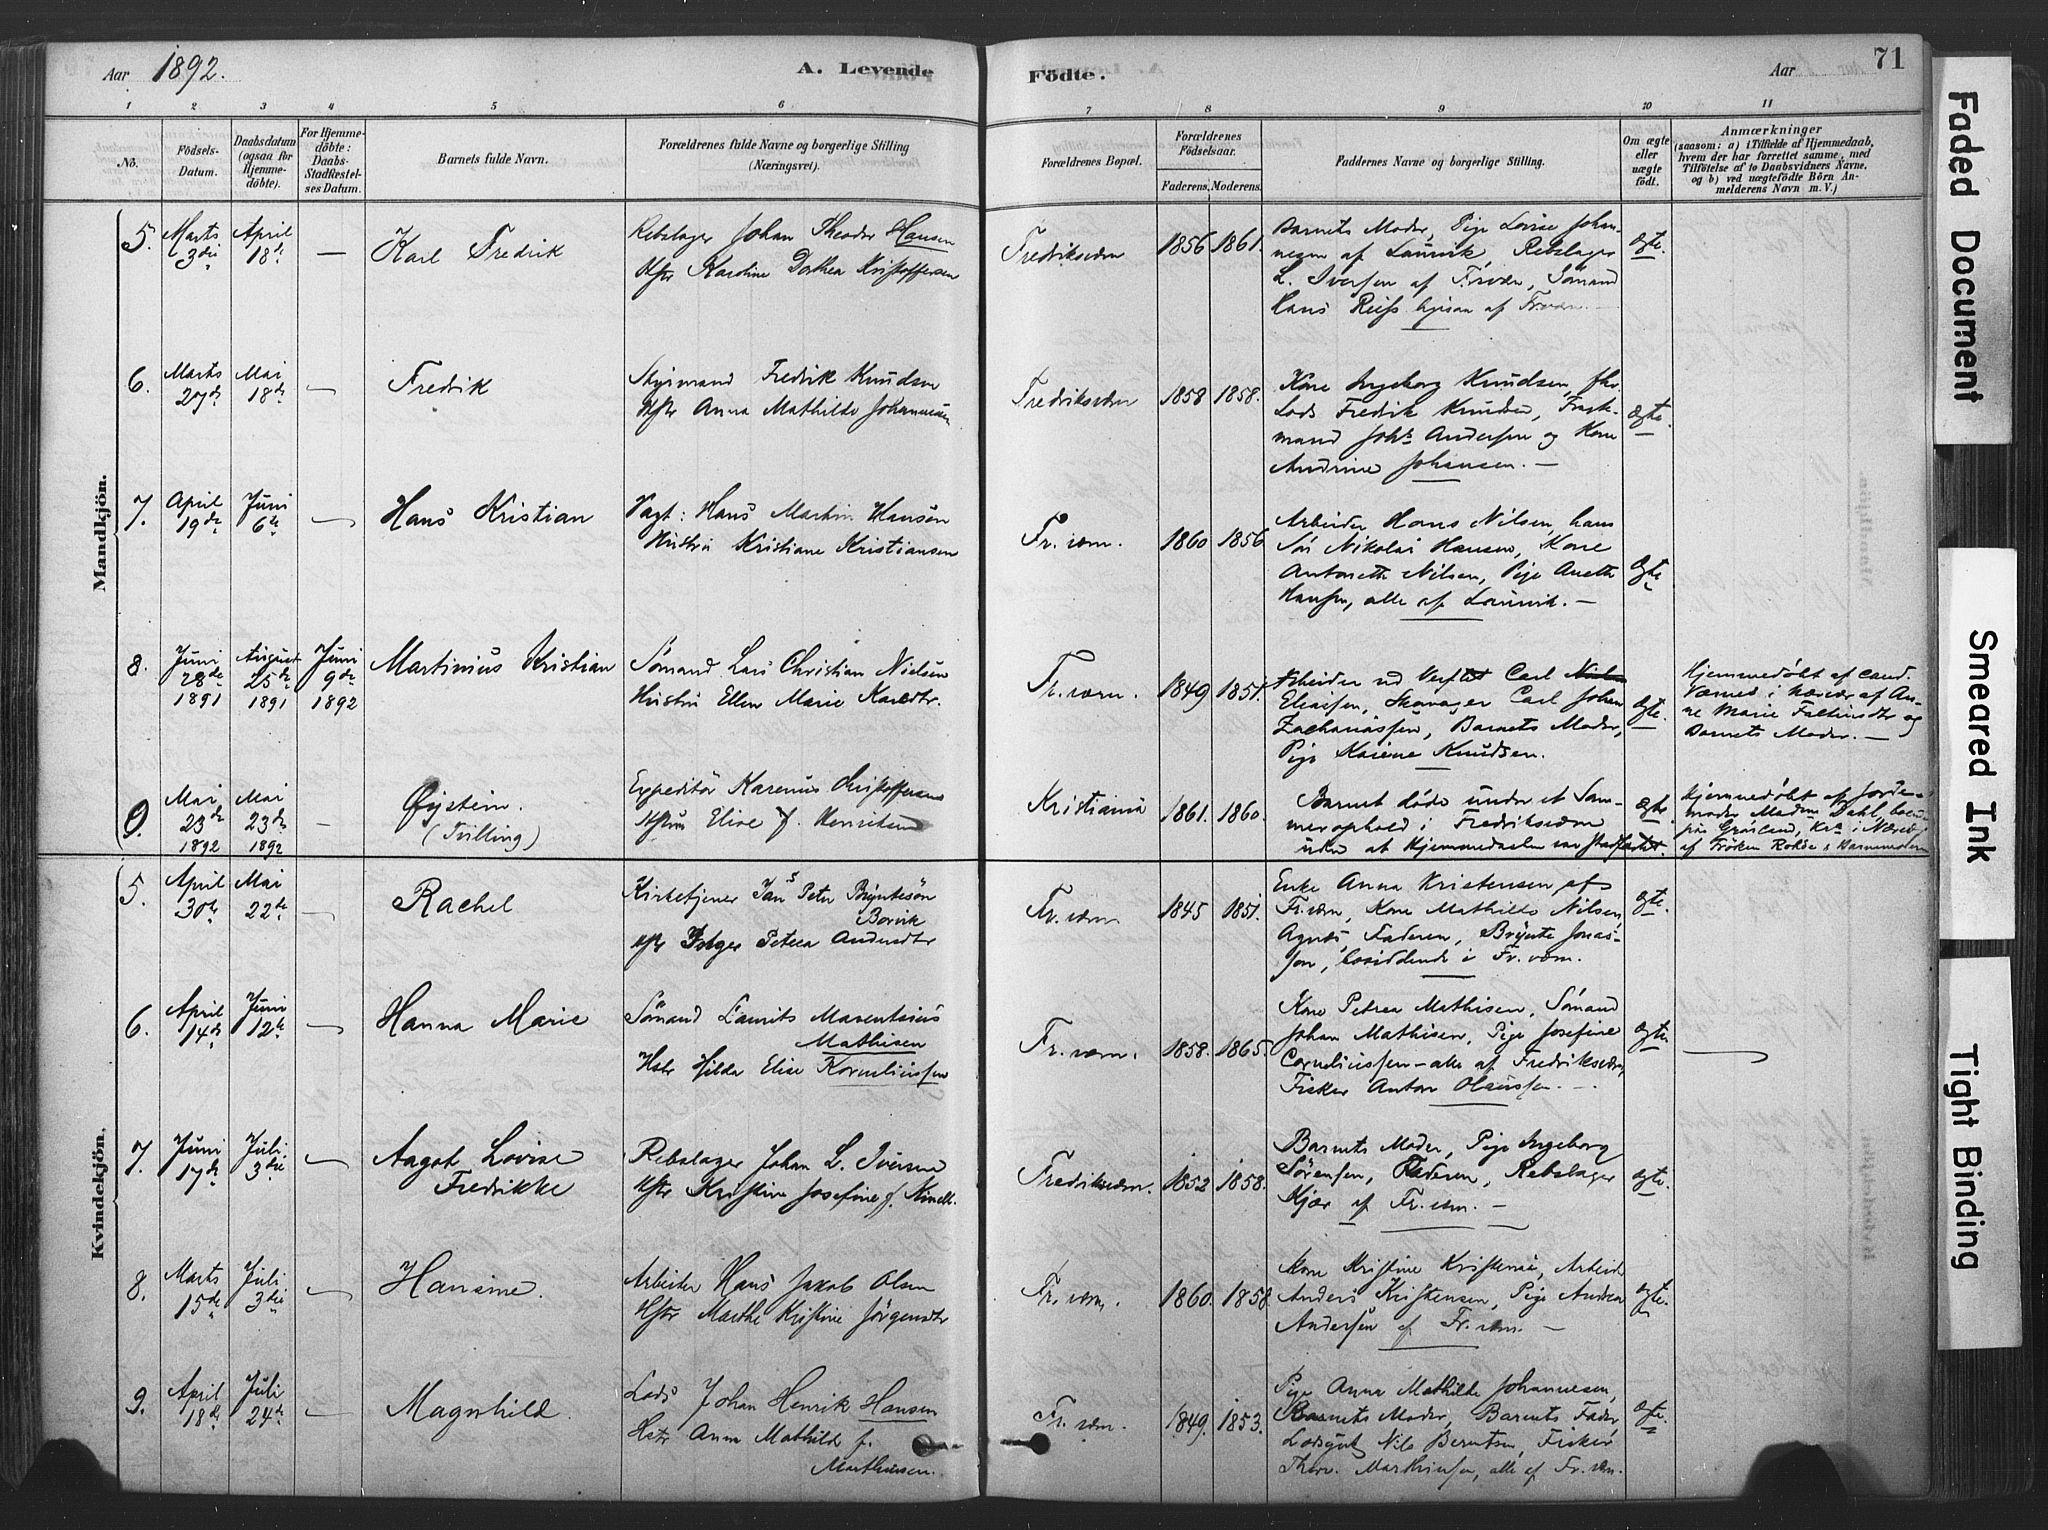 Aar 1892.
A. Levende
Födte.
Aar
71
1 2 3 4 5 6 7 8 9 10 11
No.
Födsels-
Datum.
Daabsdatum
(ogsaa for
Hjemme-
döbte).
For Hjemme-
döbte:
Daabs-
Stadfæstel-
ses Datum.
Barnets fulde Navn.
Forældrenes fulde Navne og borgerlige Stilling
(Næringsvei).
Forældrenes Bopæl.
Forældrenes
Födselsaar.
Faderens. Moderens.
Faddernes Navne og borgerlige Stilling.
Om ægte
eller
uægte
födt.
Anmærkninger
(saasom: a) i Tilfælde af Hjemmedaab,
hvem der har forrettet samme, med
Tilföielse af to Daabsvidners Navne,
og b) ved uægtefödte Börn An-
melderens Navn m. V.)
Mandkjön.
5.
Marts
3die
April
18de
—
Karl Fredrik
Rebslager Johan Theodor Hansen
Hstr Karoline Dorthea Kristoffersen
Fredriksværn
1856 1861.
Barnets Moder, Pige Lovise Johan-
nesen af Laurvik, Rebslager
L. Iversen af Frværn, Sömand
Hans af Frværn.
ægte.
6.
Marts
27de
Mai
18de
—
Fredrik
Fredrik Knudsen
Hstr Anna Mathilde Johannesen
Fredriksværn
1858 1858.
Kone Ingeborg Knudsen, fhv.
Lods Fredrik Knudsen,
mand Johs Andersen og Kone
Andrine Johansen. —
ægte.
7.
April
19de
Juni
6te
—
Hans Kristian
Vagt: Hans Martin Hansen
Hustru Kristiane Kristiansen
Fr.værn.
1860 1856
Arbeider Hans Nilsen, hans
Sön Nikolai Hansen, Kone
Antonette Nilsen, Pige Anette
Hansen, alle af Laurvik. —
ægte
8.
Juni
28de
1891
August
25de
1891
Juni
9de
1892
Martinius Kristian
Sömand Lars Christian Nielsen
Hustru Ellen Marie Karlsdtr.
Fr.værn.
1849 1851.
Arbeider ved Verftet Carl
Eliassen, Skomager Carl Johan
Zachariassen, Barnets Moder,
Pige Knudsen.
ægte.
Hjemmedøbt af cand.
i Nærvær af An-
ne Marie og
Barnets Moder. —
9.
Mai
23de
1892
Mai
23de
1892
—
Øystein.
(Tvilling)
Expeditör Karenius Christoffersen
Hustru Elise f. Henriksen
Kristiania
1861. 1860.
Barnet døde under et Som-
merophold i Fredriksværn
uden at Hjemmedaaben var stadfæstet.
ægte.
Hjemmedøbt af Jorde-
moder Madam Dahl,
i Nærvær
af Frøken &
Kvindekjön.
5.
April
30te
Mai
22de
—
Rachel
Kirketjener Jan Peter Bryntesön
Borvik
Hstr Petrea Andersdtr
Fr.værn
1845 1851.
Enke Anna Kristensen af
Fr.værn, Kone Mathilde Nilsen,
Agnes, Faderen, Brynte Jonas-
sen, bosiddende i Fr.værn.
ægte.
6.
April
14de
Juni
12te
—
Hanna Marie
Sömand Laurits Marentsius
Mathisen
Hstr Hilda Elise Korneliussen
Fr.værn.
1858. 1865.
Kone Petrea Mathisen, Sömand
Johan Mathisen, Pige Josefine
Corneliussen – alle af Fredriksværn,
Fisker Anton Olaussen. —
ægte
—
7.
Juni
17de
Juli
3die
—
Aagot Lovise
Fredrikke
Rebslager Johan L. Iversen
Hstr Kristine Josefine f.
Fredriksværn.
1852 1858.
Barnets Moder, Pige Ingeborg
Sörensen, Faderen, Rebslager
Kjær af Fr.værn. —
ægte.
8.
Marts
15de
Juli
3die
—
Hansine.
Arbeider Hans Jakob Olsen
Hstr Marthe Kristine Jörgensdtr
Fr.værn,
1860. 1858.
Kone Kristine Kristensen, Arbeider
Anders Kristensen, Pige Andrea
Andersen af Fr.værn. —
ægte.
9.
April
18de
Juli
24de
—
Magnhild.
Lods Johan Henrik Hansen
Hstr Anna Mathilde f.
Marthinsen.
Fr.værn.
1849. 1853.
Pige Anna Mathilde Johannesen,
Barnets Moder, Barnets Fader
Nils Berntsen, Fisker
Thorv. Marthinsen, alle af Fr.værn.
ægte.
Faded Document
Smeared Ink
Tight Binding